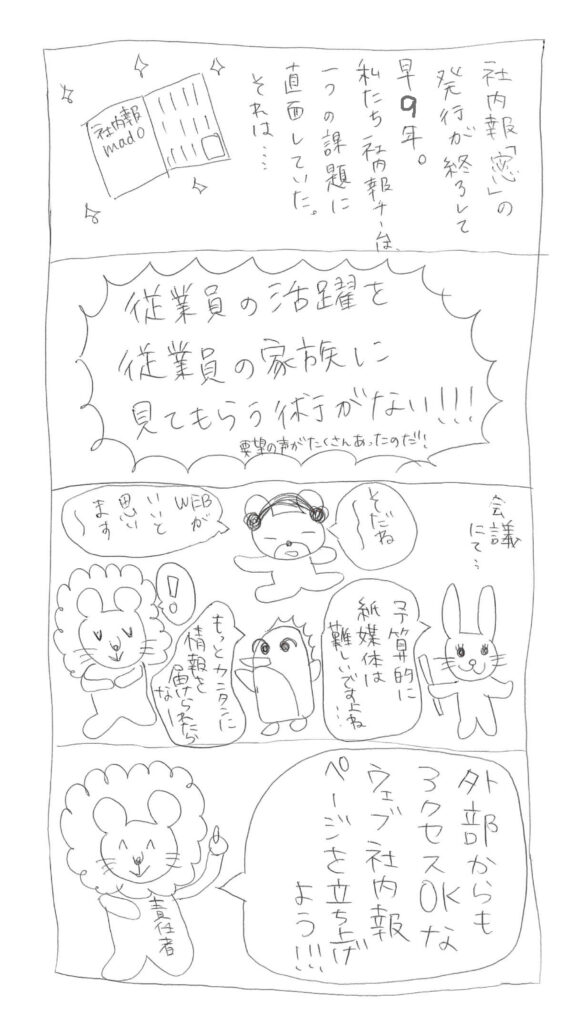 社内報「窓」の
発行が終了して
早9年。
私たち社内報チームは、
一つの課題に
直面していた。
それは….
社内報
mado
従業員の活躍を
従業員の家族に
見てもらう術がない!!!
要望の声がたくさんあったのだ!
会議
にて…
そだね
〜
WEBが
いいと
思い
ます
〜
予算的に
紙媒体は
難しいですよね…
もっとカンタンに
情報を
届けられたら
な…
!
外部からも
アクセスOKな
ウェブ社内報
ページを立ち上げ
よう!!!
責任者